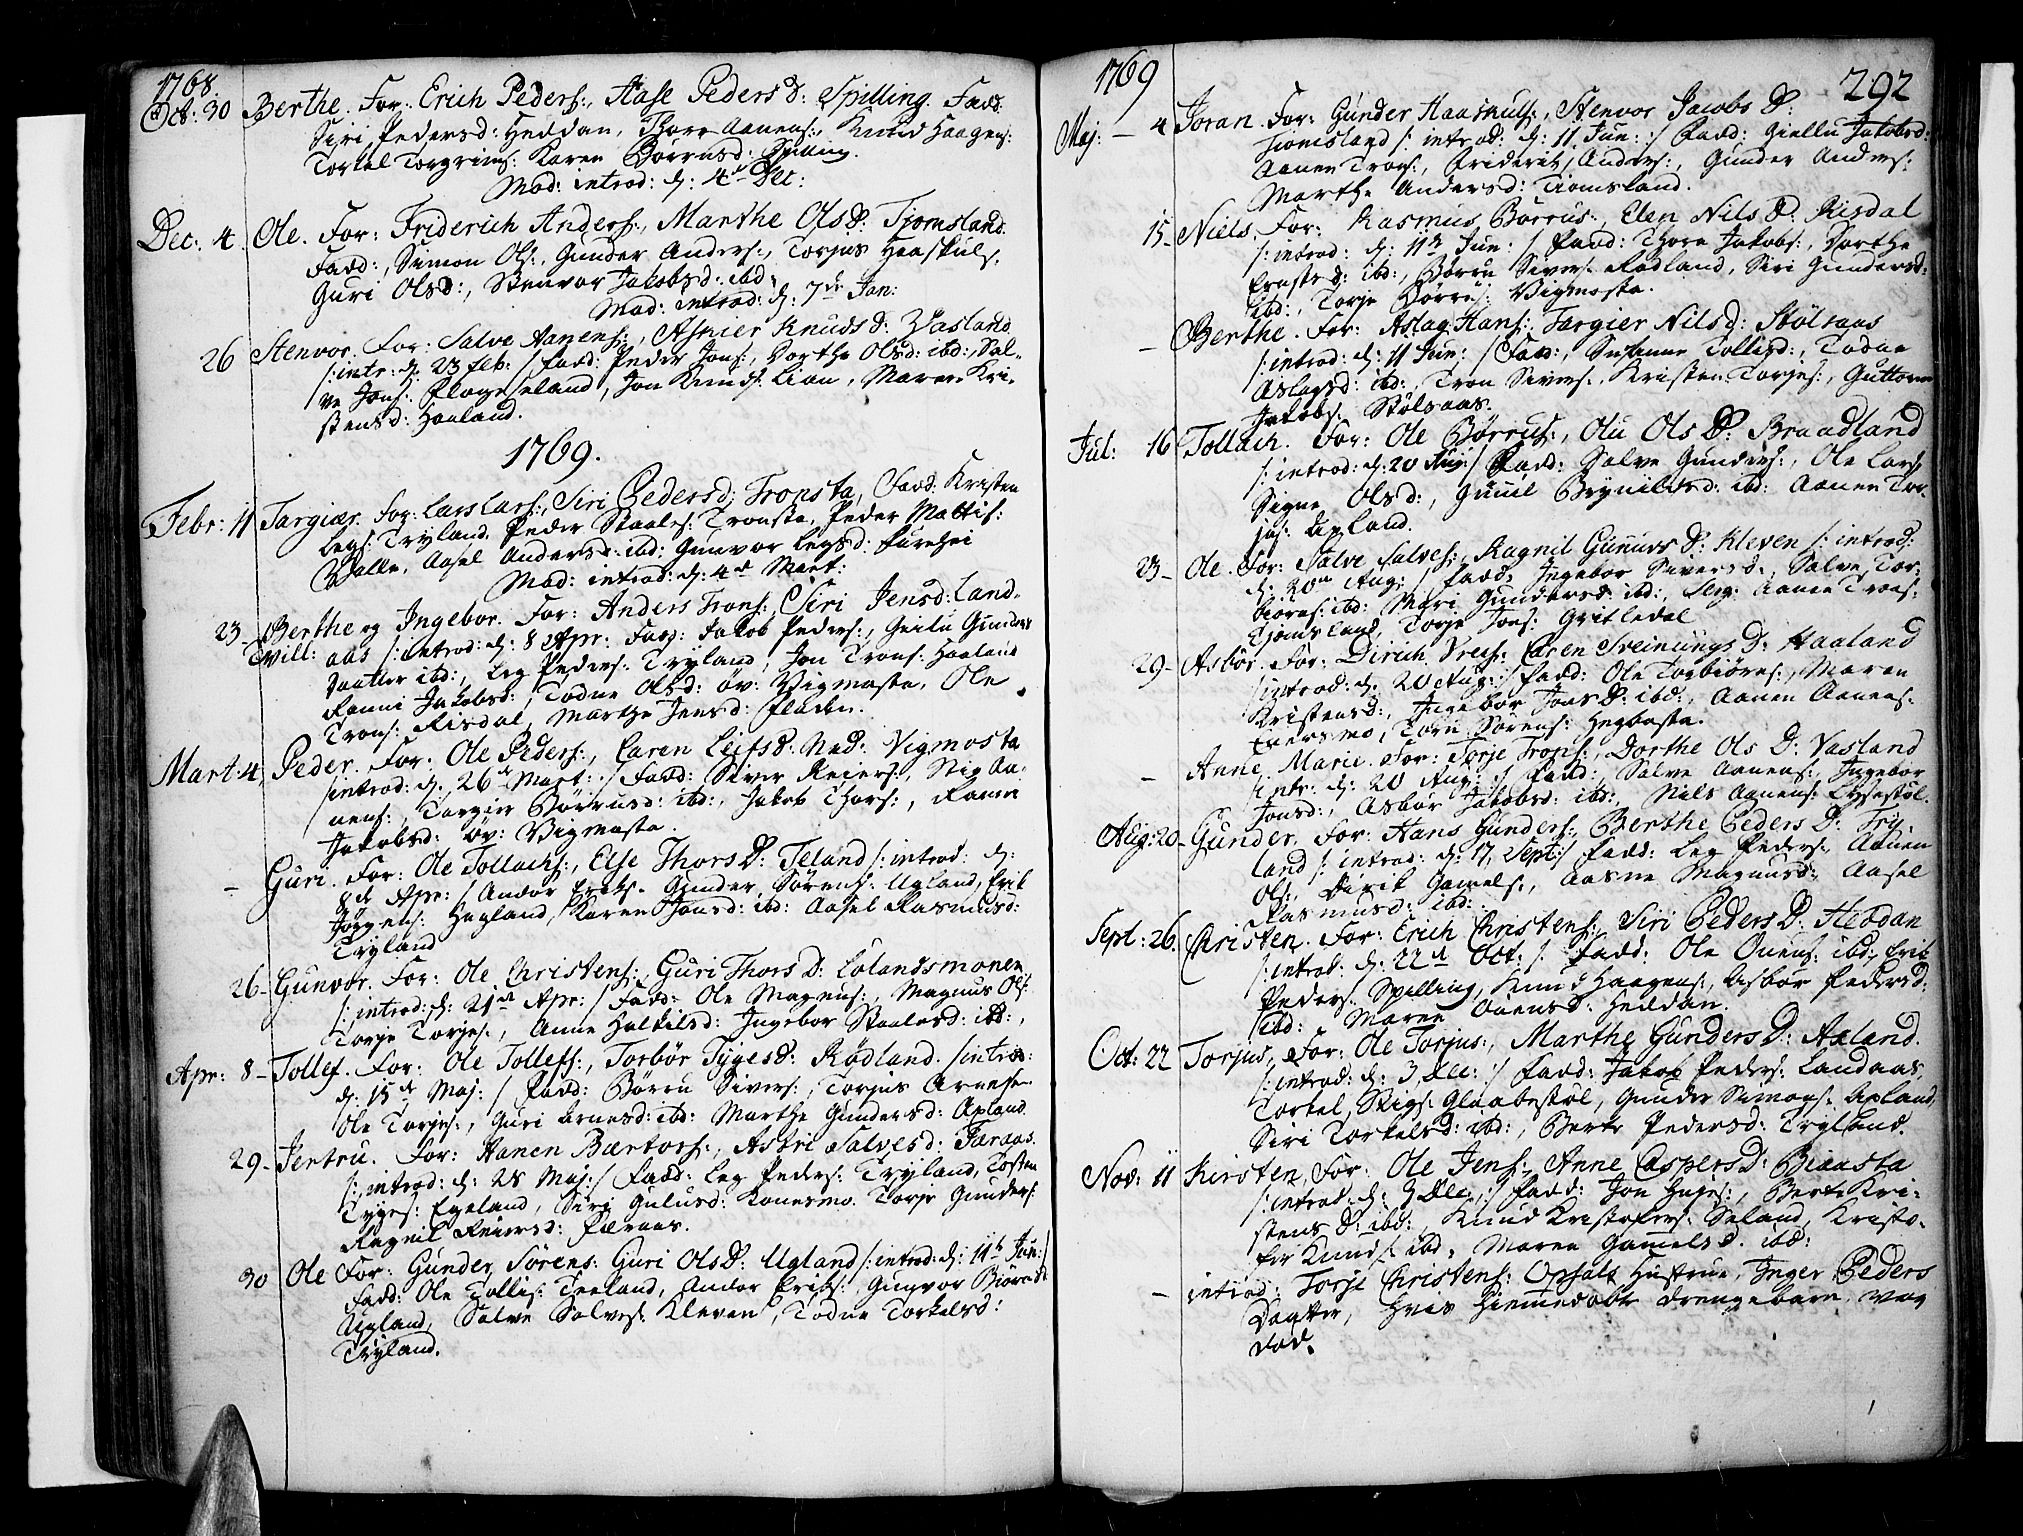 1768.
Oct: 30 Berthe. For: Erich Peders:, Aase Peders D: Spilling. Fadd:
Siri Pedersd: Heddan, Thore Aanens:, Knud Haagens:
Torkel Torgrims: Karen Børrusd: Spilling.
Mod: introd: d: 4de Dec:
Dec: 4. Ole. For: Friderich Anders:, Marthe Ols D: Tjomsland.
Fadd:, Simon Ols:, Gunder Anders:, Torjus Haaskuls:
Guri Olsd:, Stenvor Jakobsd: ibd:
Mod: introd: d: 7de Jan:
26 Stenvor. For: Salve Aanens:, Asgier Knuds D: Vasland.
/: intr: d: 23 Feb: / Fadd: Peder Jons:, Dorthe Olsd: ibd:, Sal-
ve Jons: Flogeseland, Jon Knuds: Lian, Maren Kri-
stensd: Haaland.
1769.
Febr: 11 Targier. For: Lars Lars:, Siri Pedersd: Tronsta, Fadd: Kristen
Legs: Tryland, Peder Staales: Tronsta, Peder Mattis:
Valle, Aasel Andersd: ibd: Gunvor Legsd: Furehei
Mod: introd: d: 4de Mart:
23- Berthe og Ingebor. For: Anders Trons:, Siri Jensd: Land-
Tvill: aas /: introd: d: 8 Apr: Fadd: Jakob Peders:, Geilu Gunders
Datter ibd:, Leg Peders: Tryland, Jon Trons: Haaland
Ranni Jakobsd:, Todne Olsd: øv: Vigmosta, Ole
Trons: Risdal, Marthe Jensd: Fladen.
Mart: 4, Peder. For: Ole Peders:, Caren Leifs D: Ned: Vigmosta
/introd: d: 26de Mart: / Fadd: Siver Reiers:, Stig Aa-
nens:, Targier Børrusd: ibd:, Jakob Thors:, Ranni
Jakobsd: øv: Vigmosta.
- Guri. For: Ole Tollachs:, Else Thors D: Teland /: introd: d:
8de Apr: / Andor Eriks: Gunder Sørens: Ugland, Erik
Jørgens: Hegland, Karen Jonsd: ibd: Aasel Rasmusd:
Tryland
26- Gunvor. For: Ole Christens:, Guri Thors D: Lølandsmonen
/: introd: d: 21de Apr: / Fadd: Ole Magnus:, Magnus Ols:
Torje Torjes:, Anne Halkilsd: Ingebor Staalesd: ibd:,
Apr: 8- Tollef. For: Ole Tollefs:, Torbør Tyges D: Rødland. /introd:
d: 15de Maj: / Fadd: Børru Sivers:, Torjus Arnes:
Ole Torjes:, Guri Arnesd: ibd: Marthe Gundersd: Apland
29- Jertru. For: Aanen Bertors:, Astri Salvesd: Faraas.
/: introd: d: 28 Maj: / Fadd: Leg Peders: Tryland, Tosten
Tyges: Egeland, Siri Gulusd: Konesmo Torje Gunders:
Ragnil Reiersd: Færaas.
30 Ole For: Gunder Sørens: Guri Ols D: Ugland /: introd: d: 11te Jun: /
Fadd: Ole Tollis: Teeland, Andor Eriks:, Gunvor Biørnsd:
Ugland, Salve Salves: Kleven, Todne Torkelsd:
Tryland.
1769 292
Maj: - 4 Joran. For: Gunder Haaskuls:, Stenvor Jacobs D:
Tiomsland /: introd: d: 11 Jun: :/ Fadd: Giellu Jakobsd:
Aanen Trons:, Friderik Anders:, Gunder Anders:
Marthe Andersd: Tiomsland.
15- Niels. For: Rasmus Børrus:, Elen Nils D: Risdal
/: introd: d: 11te Jun: / Fadd: Thore Jakobs:, Dorthe
Ernstsd: ibd:, Børru Sivers: Rødland, Siri Gundersd:
ibd:, Torje Børrus: Vigmosta.
- Berthe. For: Aslag Hans: Targier Nilsd: Stølsaas
/: introd: d: 11 Jun: / Fadd:, Susanne Tollisd:, Todne
Aslagsd: ibd:, Tron Sivers:, Kristen Torjes:, Guttorm
Jakobs: Stølsaas.
Jul: 16 Tollach. For: Ole Børrus:, Olu Ols D: Braadland
/: introd: d: 20 Aug: / Fadd: Salve Gunders:, Ole Lars:
Signe Olsd:, Gunil Brynildsd: ibd: Aanen Tor-
jus: Apland.
23- Ole. For: Salve Salves:, Ragnil Gunuvs D: Kleven /: introd:
d: 20de Aug: / Fadd: Ingebor Siversd:, Salve Tor-
biørns: ibd: Mari Gundersd: ibd:, Aanen Trons:
Tjomsland, Torje Jons: Gritledal
29- Asbør. For: Dirich Vres:, Caren Sveinungs D: Haaland
/introd: d: 20 Aug: / Fadd: Ole Torbiørns:, Maren
Kristensd:, Ingebor Jons D: ibd:, Aanen Aanens:
Eversmo, Torn Sørens: Hegbosta.
- Anne Marie. For: Torje Trons:, Dorthe Ols D: Vasland
/intr: d: 20 Aug: :/ Fadd:, Salve Aanens:, Ingebor
Jonsd:, Asbør Jakobsd: ibd:, Nils Aanens: Lysestøl.
Aug: 20- Gunder. For: Hans Gunders:, Berthe Peders D: Try-
land /: introd: d: 17 Sept: / Fadd: Leg Peders:, Aanen
Ols:, Dirik Gamels:, Aasne Magnusd:, Aasel
Rasmusd: ibd:
Sept: 26. Christen. For: Erich Christens:, Siri Peders D: Heddan
/: introd: d: 22de Oct: /: Fadd: Ole Ouens: ibd:, Erik
Peders: Spilling, Knud Haagens:, Asbør Pedersd:
ibd: Maren Ouensd: Heddan.
Oct: 22 Torjus, For: Ole Torjus:, Marthe Gunders D: Apland.
/: introd: d: 3 Dec: :/ Fadd: Jakob Peders: Landaas,
Torkel Stigs: Glaabestøl, Gunder Simons: Apland,
Siri Torkelsd: ibd:, Berte Pedersd: Tryland.
Nov: 11 Kirsten, For: Ole Jens:, Anne Caspers D: Biaasta
/: introd: d: 9 Dec: :/ Fadd: Jon Hages:, Berte Kri-
stens D: ibd:, Knud Kristofers: Seland, Kristo-
fer Knuds: ibd, Maren Gamels D: ibd:
- introd: Torje Christens: Opsals Hustrue, Inger Peders
Dagter, Hvis Hiemmedøbte Drengebarn var
død.